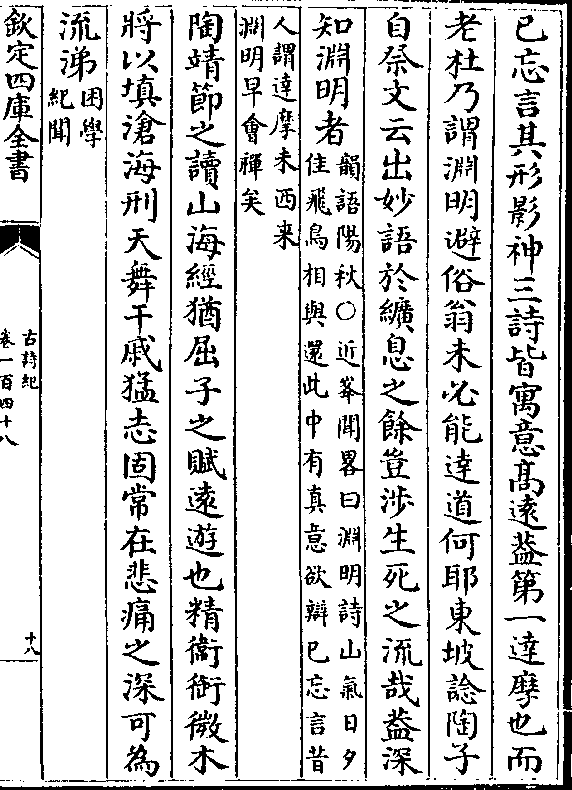 已忘言其形影神三詩皆寓意髙遠葢第一達摩也而
老杜乃謂淵明避俗翁未必能達道何耶東坡諗陶子
自祭文云出妙語於纊息之餘豈渉生死之流哉葢深
知淵明者
韻語陽秋○近峯聞畧曰淵明詩山氣日夕
佳飛鳥相與還此中有真意欲辯已忘言昔
人謂達摩未西来
淵明早會禪矣
陶靖節之讀山海經猶屈子之賦遠遊也精衞銜微木
將以填滄海刑天舞干戚猛志固常在悲痛之深可為
流涕
困學
紀聞
欽定四庫全書
古詩紀
卷一百四十八
十八